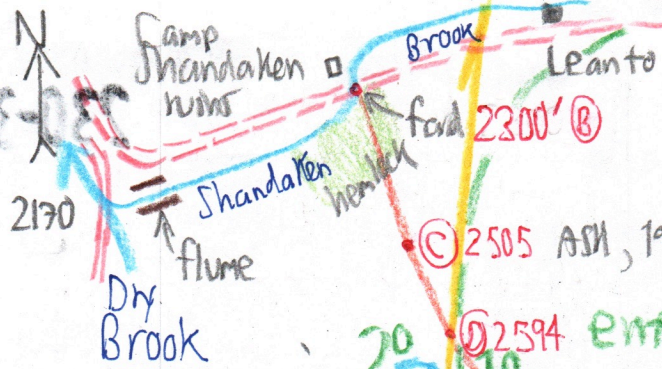 N
Camp
Shandaken
ruins
Brook
Lean to
ford
2300' B
hemlock
Shandaken
2170
flume
C 2505 ASH, 19
Dry
Brook
D 2594
20